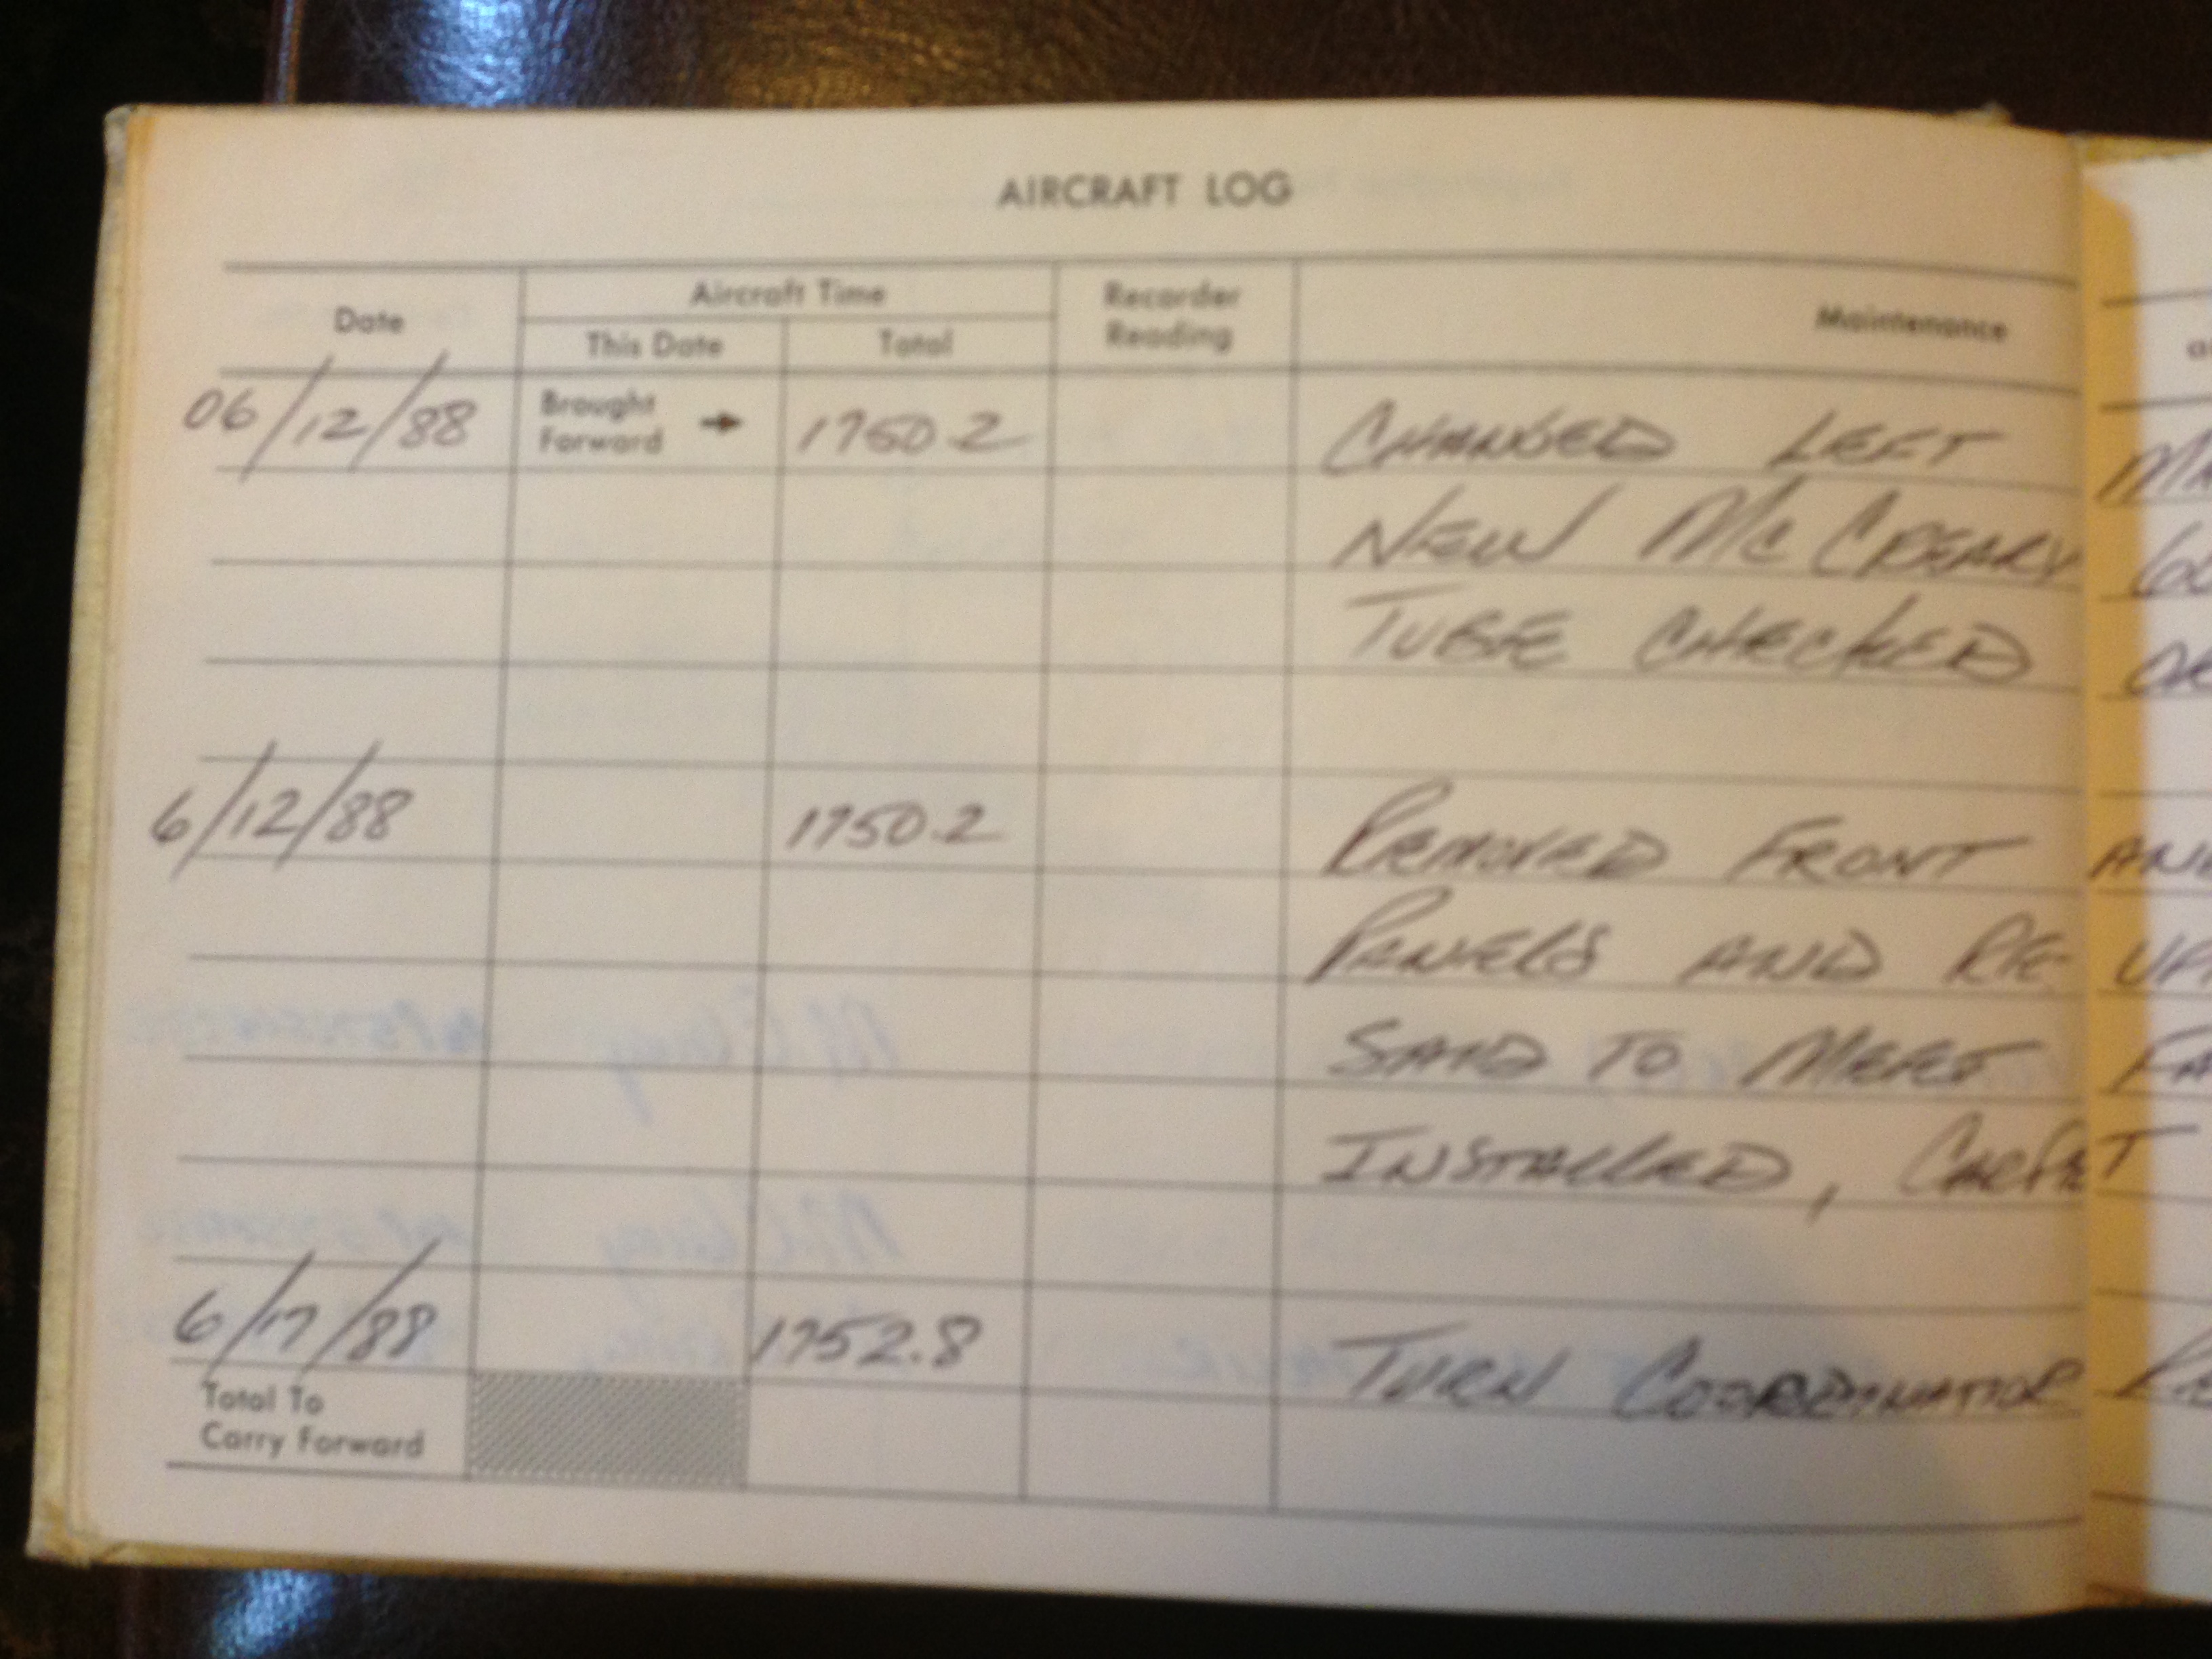 AIRCRAFT LOG
Date
Aircraft Time
This Date
Total
Recorder Reading
Maintenance
06/12/88 Brought Forward → 1750.2 CHANGED LEFT MA
NEW McCREARY
TUBE CHECKED
6/12/88 1750.2 REMOVED FRONT AND
PANELS AND RE- UP
SAID TO MEET FA
INSTALLED, CARPET
6/17/88 1752.8 TURN COORDINATOR
Total To Carry Forward